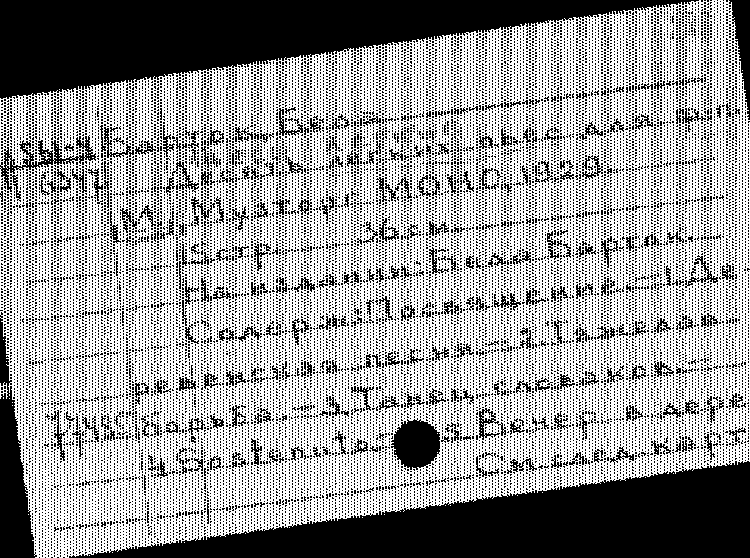 Барток, Бела
Десять легких пьес для ф-п.
[М.], Музторг МОНО, 1929.
5стр. 36см.
На издании: Бела Барток.
Содерж.: Посвящение.-1.Де-
ревенская песня.-2.Тяжелая
борьба.-3.Танец словаков.-
4.Sostenuto.- 5.Вечер в дере
См. след. карт